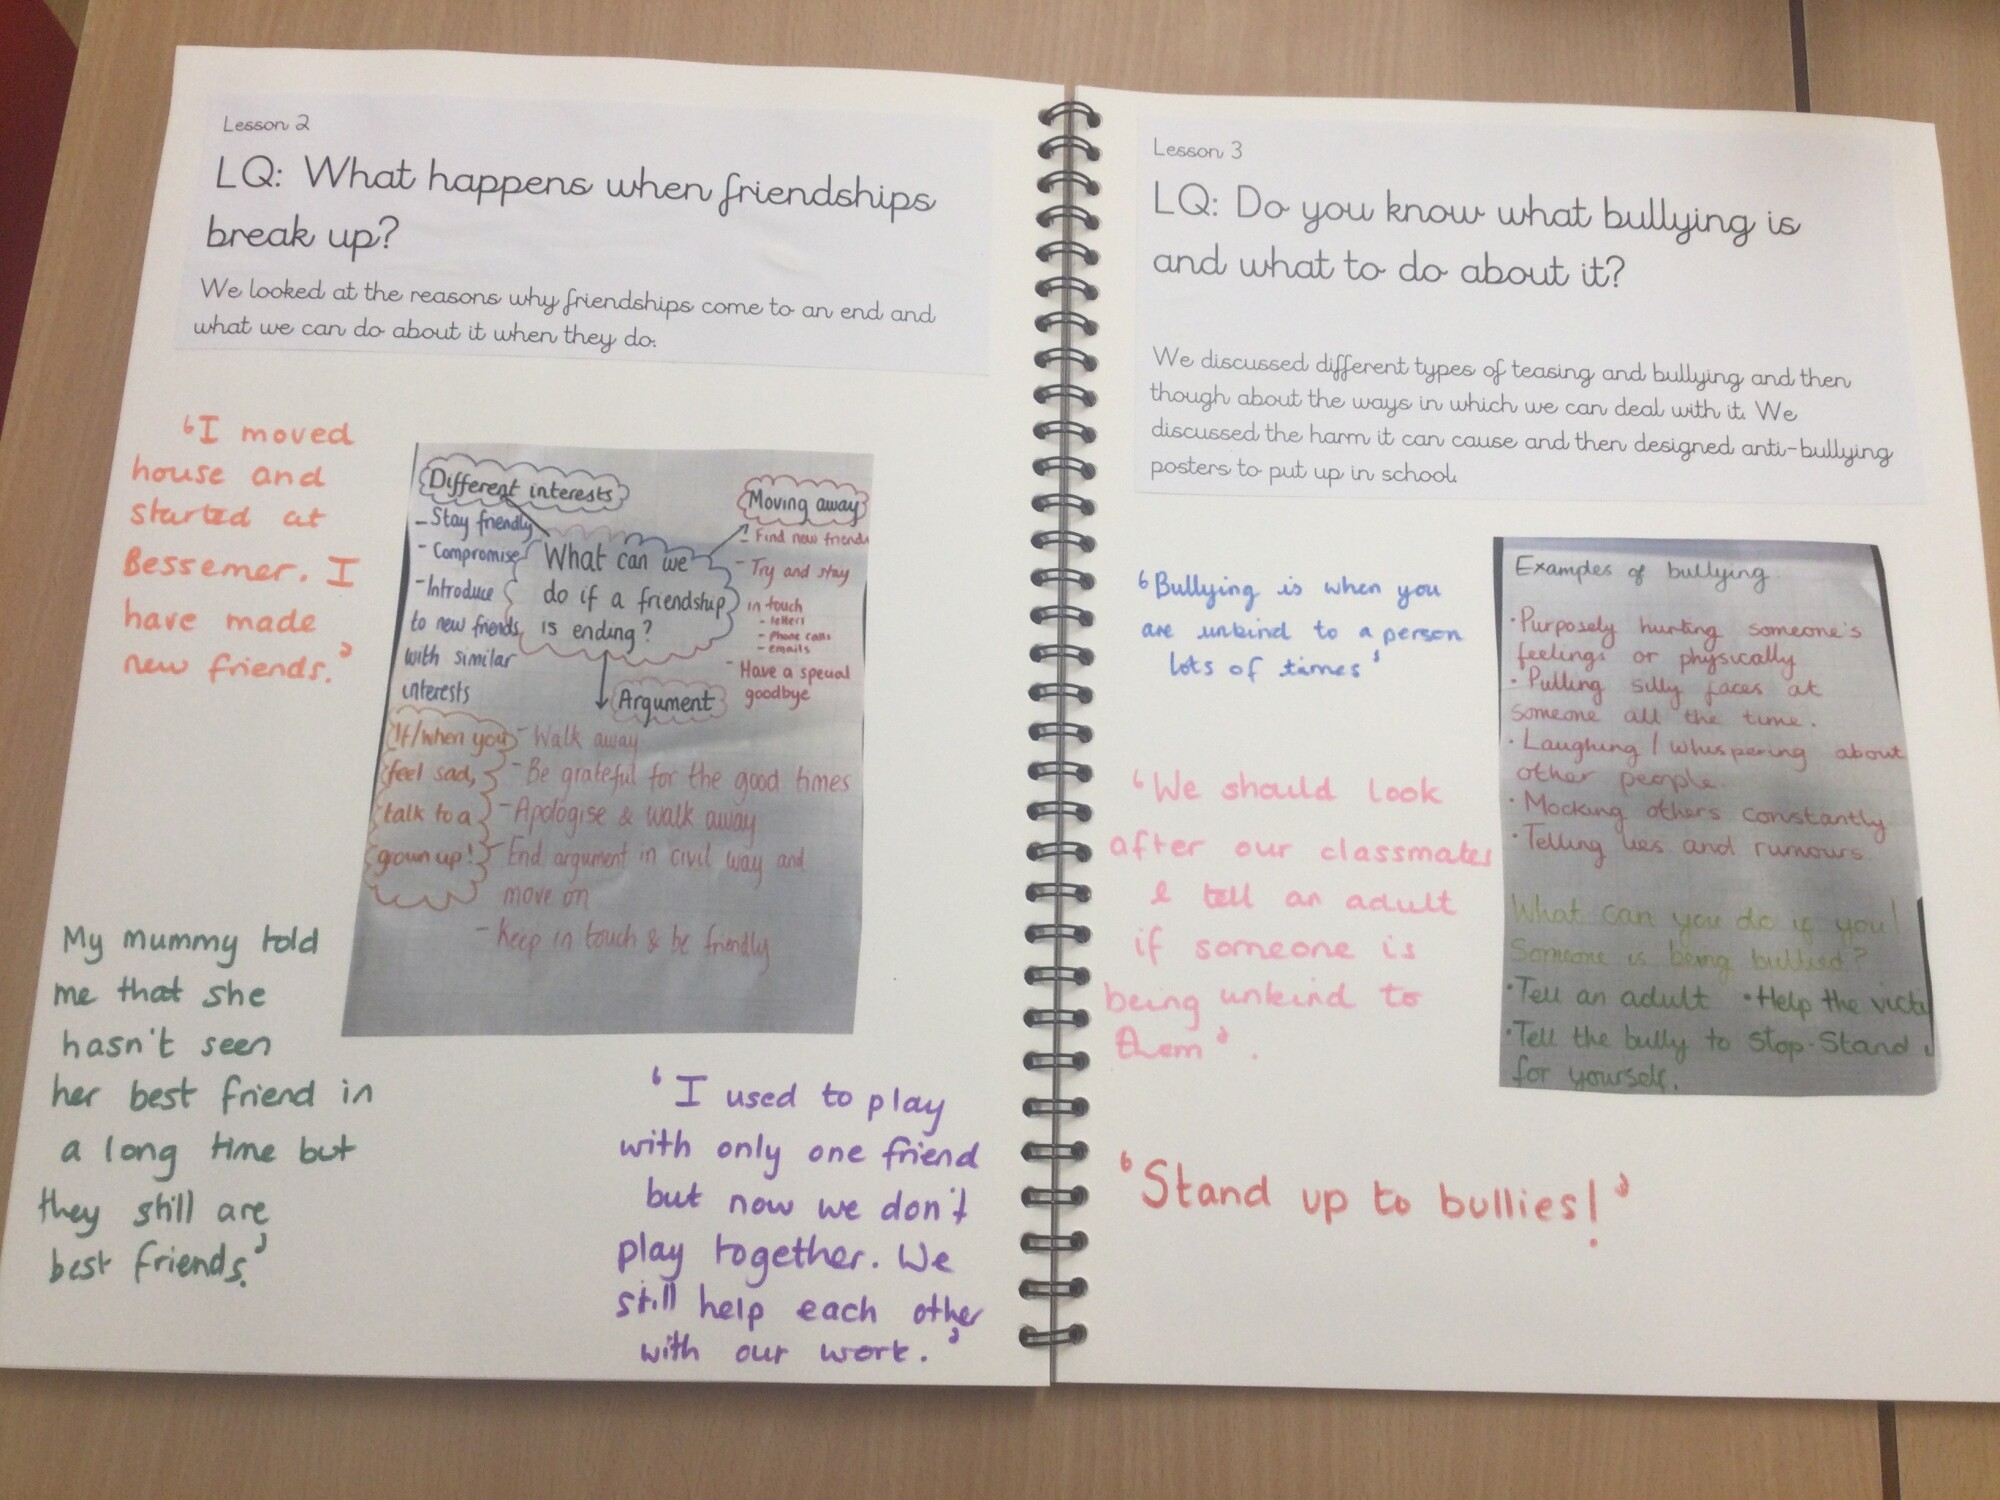 Lesson 2
LQ: What happens when friendships
break up?
We looked at the reasons why friendships come to an end and
what we can do about it when they do.
'I moved
house and
started at
Bessemer. I
have made
new friends.'
Different interests
- Stay friendly
- Compromise
- Introduce
to new friends
with similar
interests
What can we
do if a friendship
is ending?
Moving away
- Find new friends
- Try and stay
in touch
- letters
- Phone calls
- emails
- Have a special
goodbye
Argument
If/when you
feel sad,
talk to a
grown up!
- Walk away
- Be grateful for the good times
- Apologise & walk away
- End argument in civil way and
move on
- Keep in touch & be friendly
My mummy told
me that she
hasn't seen
her best friend in
a long time but
they still are
best friends.'
'I used to play
with only one friend
but now we don't
play together. We
still help each other
with our work.'
Lesson 3
LQ: Do you know what bullying is
and what to do about it?
We discussed different types of teasing and bullying and then
though about the ways in which we can deal with it. We
discussed the harm it can cause and then designed anti-bullying
posters to put up in school.
'Bullying is when you
are unkind to a person
lots of times'
'We should look
after our classmates
& tell an adult
if someone is
being unkind to
them'.
Examples of bullying.
• Purposely hurting someone's
feelings or physically
• Pulling silly faces at
someone all the time.
• Laughing / whispering about
other people.
• Mocking others constantly
• Telling lies and rumours.
What can you do if you/
Someone is being bullied?
• Tell an adult • Help the
• Tell the bully to stop - Stand
for yourself.
'Stand up to bullies!'